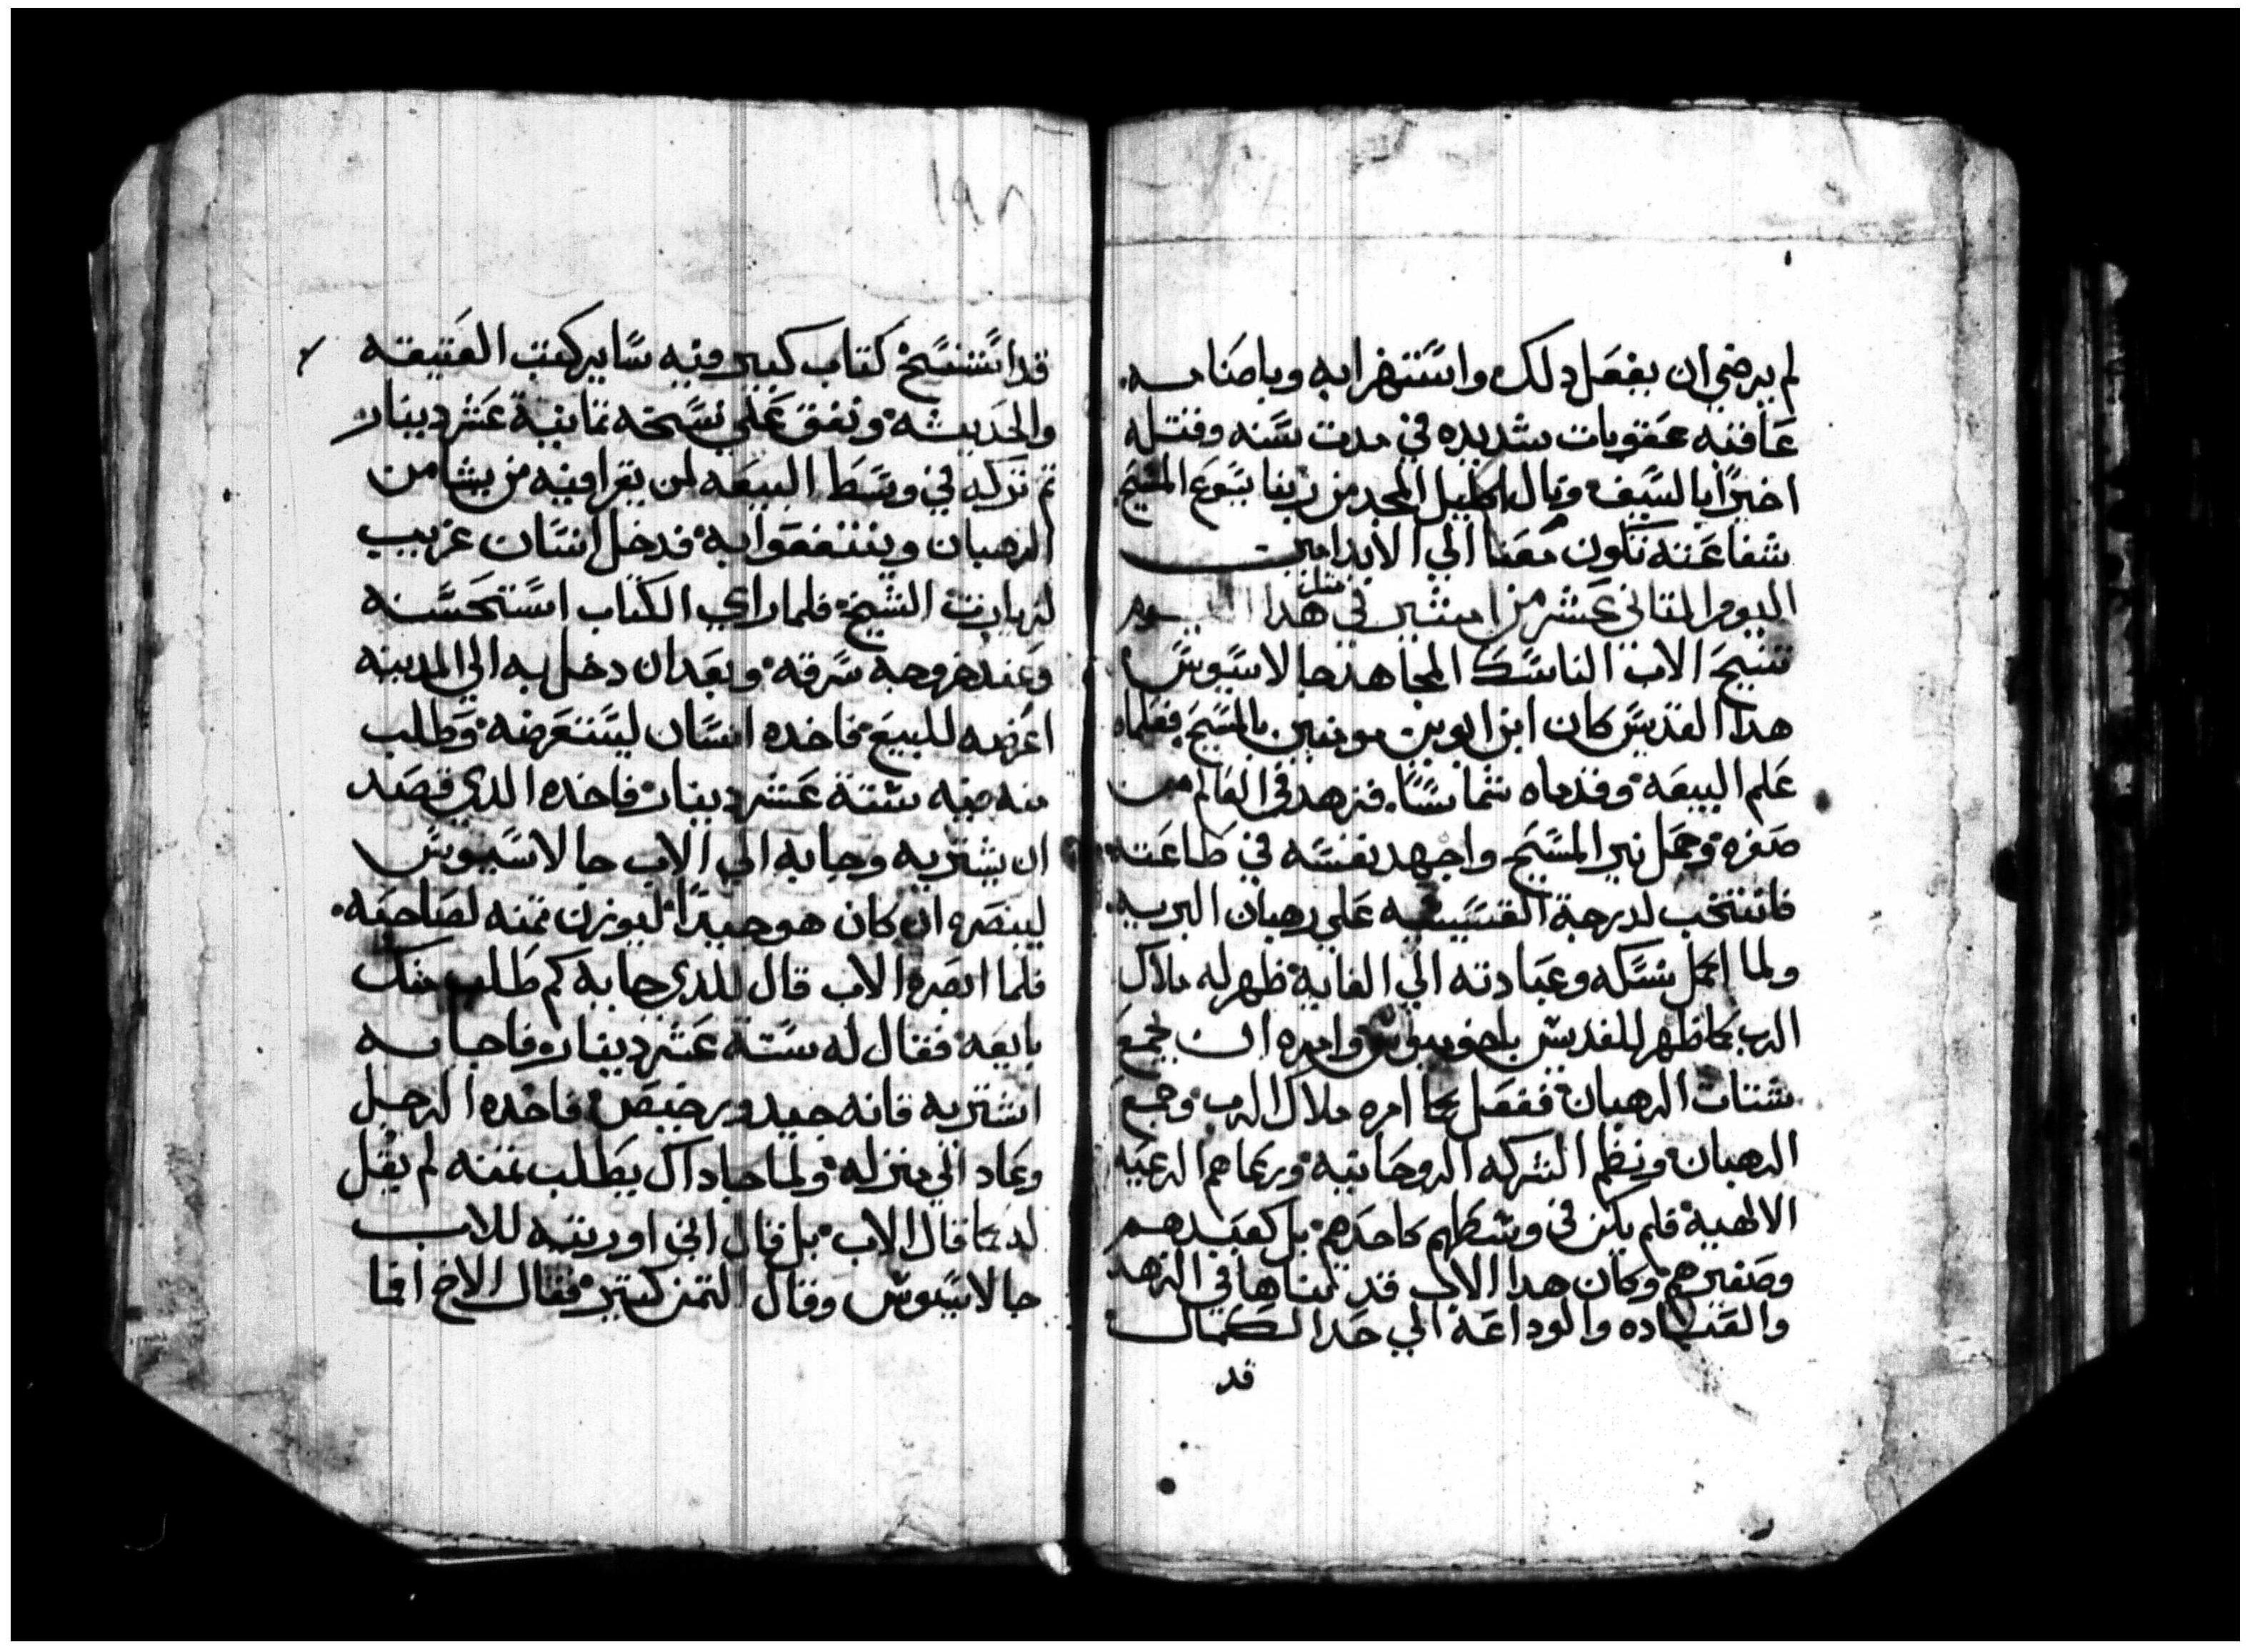 لم يرضي ان يفعل دلك واستهزا به وباصنامه
عاقبه عقوبات شديده في مدت سنه وقتله
اخيرًا بالسيف ونال اكليل المجد من ربنا يسوع المسيح
شفاعته تكون معنا الي الابد امين
اليوم التاني عشر من امشير في مثل هدا اليوم
تنيح الاب الناسك المجاهد جالاسيوس
هدا القديس كان ابن ابوين مومنين بالمسيح فعلماه
علم البيعه وقدماه شماسًا فزهد في العالم من
صغره وحمل نير المسيح واجهد نفسه في طاعته
فانتخب لدرجة القسيسيه علي رهبان البريه
ولما اكمل نسكه وعبادته الي الغايه ظهر له ملاك
الرب كما ظهر للقديس باخوميوس وامره ان يجمع
شتات الرهبان ففعل كما امره ملاك الرب وجمع
الرهبان ونظم الشركه الروحانيه ورعاهم الرعيه
الالهيه فلم يكن في وسطهم كاحدهم بل كعبدهم
وصغيرهم وكان هدا الاب قد تناها في الزهد
والعباده والوداعه الي حد الكمال
قد
١٩٨
قد استنسخ كتاب كبير وفيه ساير كتب العتيقه
والحديثه ونفق علي نسخه تمانية عشر دينار
تم تركه في وسط البيعه لمن يقرا فيه من يشا من
الرهبان وينتفعوا به فدخل انسان غريب
لزيارت الشيخ فلما راي الكتاب استحسنه
وعند خروجه سرقه وبعد ان دخل به الي المدينه
اعرضه للبيع فاخده انسان ليستعرضه وطلب
منه فيه ستة عشر دينار فاخده الدي قصد
ان يشتريه وجابه الي الاب جالاسيوس
لينصره ان كان هو جيدًا ليوزن تمنه لصاحبه
فلما ابصره الاب قال للدي جابه كم طلب منك
بايعه فقال له ستة عشر دينار فاجابه
اشتريه فانه جيد ورخيص فاخده الرجل
وعاد الي منزله ولما جا داك يطلب تمنه لم يقل
له كما قال الاب بل قال اني اوريته للاب
جالاسيوس وقال التمن كتير فقال الاخ افما